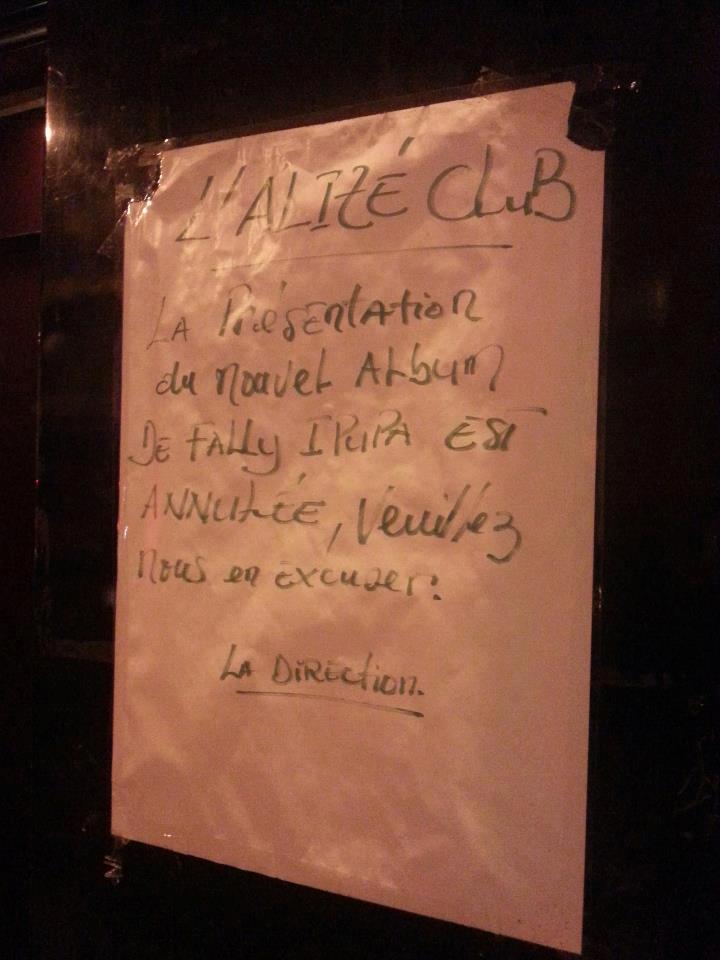 L'ALIZÉ CLUB
LA PRéSENtAtion
du nouveL ALbum
DE FALLy IPUPA EST
ANNULÉE, Veuillez
nous en Excuser.
LA DiRECtion.